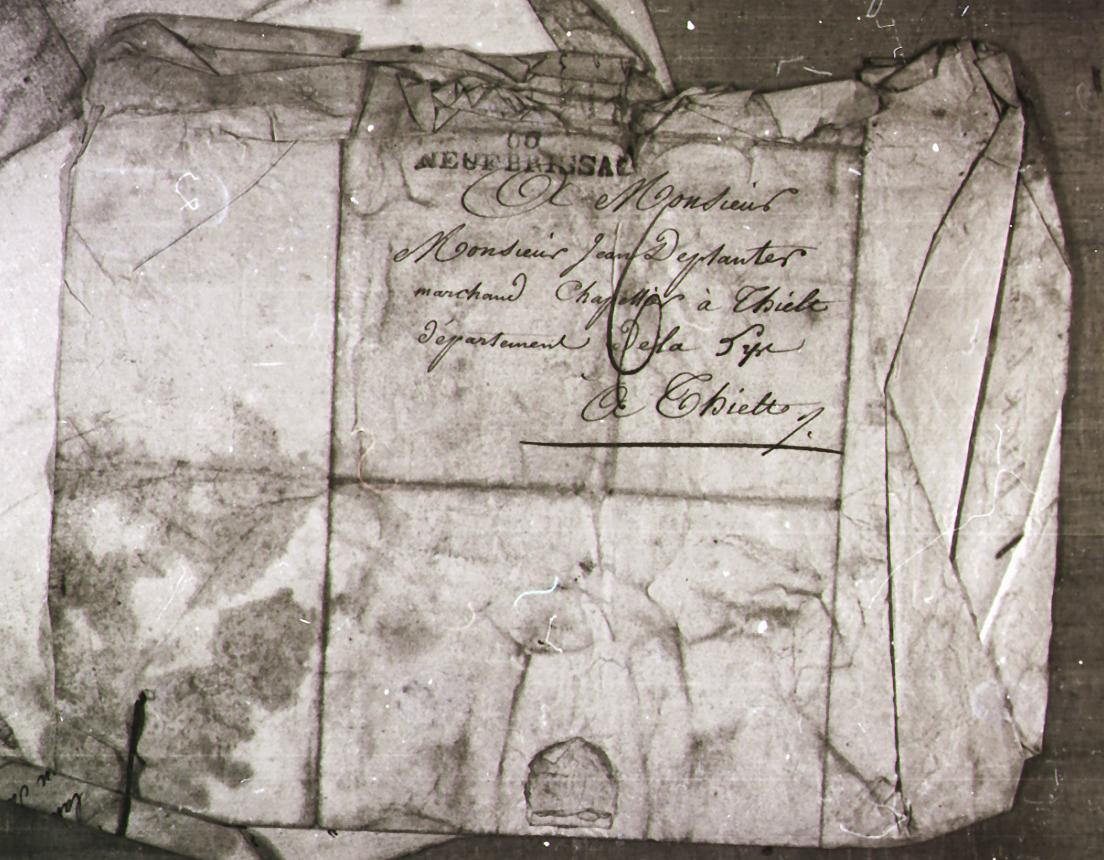 68
NEUFBRISSAC
A Monsieur
Monsieur Jean Deplanter
marchand Chapellier à Thielt
département de la Lys
A Thielt